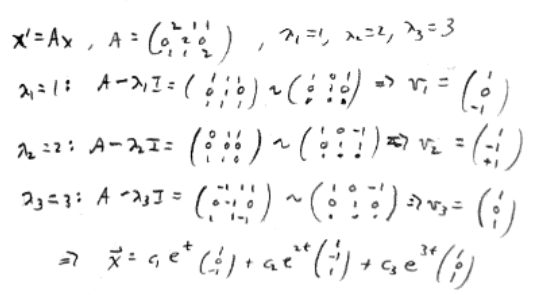 x' = Ax , A = (2 1 1; 0 2 0; 1 1 2) , λ₁=1, λ₂=2, λ₃=3
λ₁=1: A-λ₁I = (1 1 1; 0 1 0; 1 1 1) ~ (1 0 1; 0 1 0; 0 0 0) ⇒ v₁ = (1; 0; -1)
λ₂=2: A-λ₂I = (0 1 1; 0 0 0; 1 1 0) ~ (1 0 -1; 0 1 1; 0 0 0) ⇒ v₂ = (1; -1; +1)
λ₃=3: A-λ₃I = (-1 1 1; 0 -1 0; 1 1 -1) ~ (1 0 -1; 0 1 0; 0 0 0) ⇒ v₃ = (1; 0; 1)
⇒ x⃗ = c₁e^t (1; 0; -1) + c₂e^{2t} (1; -1; 1) + c₃e^{3t} (1; 0; 1)